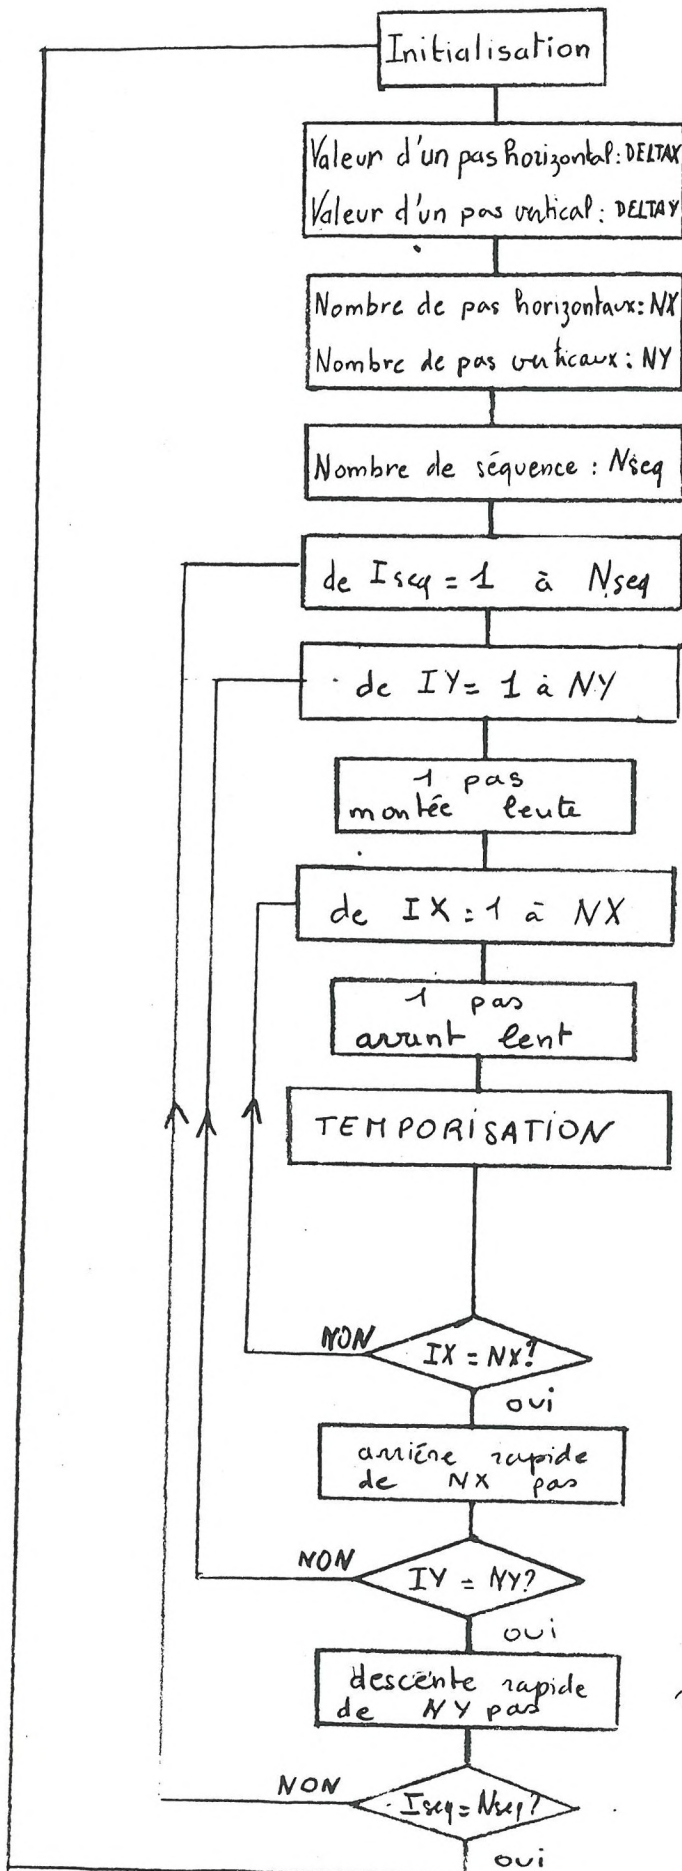 Initialisation
Valeur d'un pas horizontal: DELTAX
Valeur d'un pas vertical: DELTAY
Nombre de pas horizontaux: NX
Nombre de pas verticaux: NY
Nombre de séquence : Nseq
de Iseq = 1 à Nseq
de IY = 1 à NY
1 pas
montée lente
de IX = 1 à NX
1 pas
avant lent
TEMPORISATION
NON
IX = NX?
oui
arrière rapide
de NX pas
NON
IY = NY?
oui
descente rapide
de NY pas
NON
Iseq = Nseq?
oui